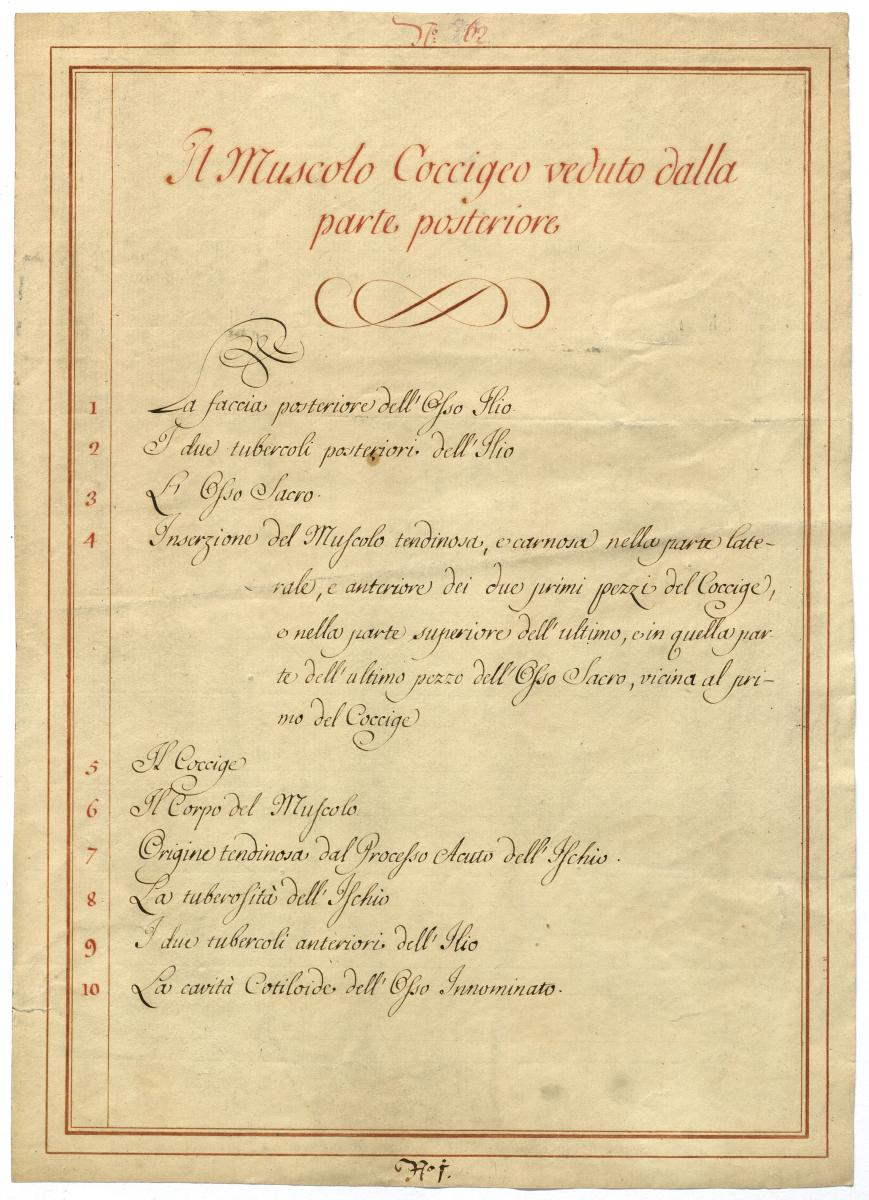 Nº 62
Il Muscolo Coccigeo veduto dalla
parte posteriore
1 La faccia posteriore dell'Osso Ilio.
2 I due tubercoli posteriori dell'Ilio
3 L'Osso Sacro.
4 Inserzione del Muſcolo tendinosa, e carnosa nella parte late-
rale, e anteriore dei due primi pezzi del Coccige,
e nella parte superiore dell'ultimo, e in quella par-
te dell'ultimo pezzo dell'Oſso Sacro, vicina al pri-
mo del Coccige
5 Il Coccige
6 Il Corpo del Muſcolo
7 Origine tendinosa dal Proceſso Acuto dell'Iſchio.
8 La tuberoſità dell'Iſchio
9 I due tubercoli anteriori dell'Ilio
10 La cavità Cotiloide dell'Oſso Innominato.